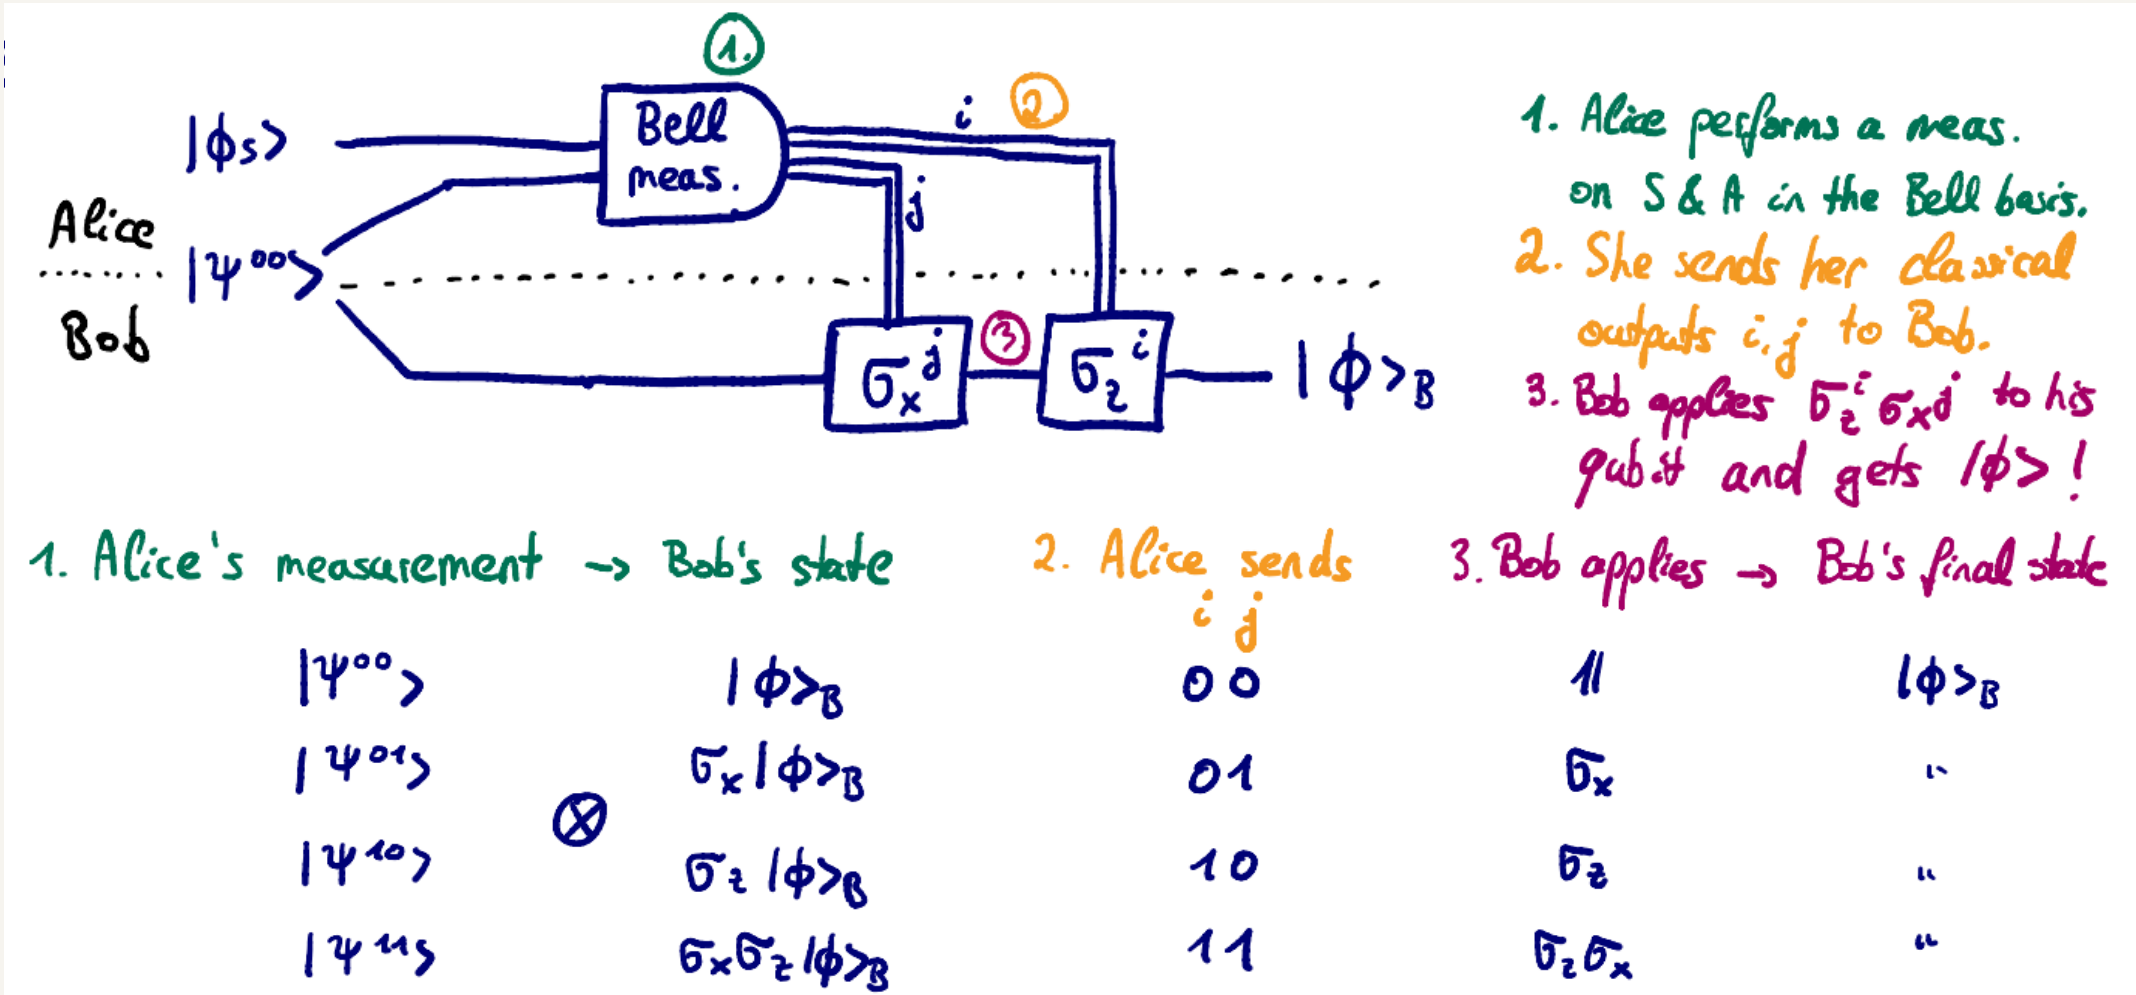 1.
|ϕs>
Bell
meas.
i
2
j
Alice
|ψ⁰⁰>
Bob
σₓʲ
3
σ_zⁱ
|ϕ>_B
1. Alice performs a meas.
on S & A in the Bell basis.
2. She sends her classical
outputs i,j to Bob.
3. Bob applies σ_zⁱ σₓʲ to his
qubit and gets |ϕ>!
1. Alice's measurement → Bob's state 2. Alice sends 3. Bob applies → Bob's final state
i j
|ψ⁰⁰> |ϕ>_B 00 𝟙 |ϕ>_B
|ψ⁰¹> σₓ|ϕ>_B 01 σₓ "
⊗
|ψ¹⁰> σ_z|ϕ>_B 10 σ_z "
|ψ¹¹> σₓσ_z|ϕ>_B 11 σ_zσₓ "